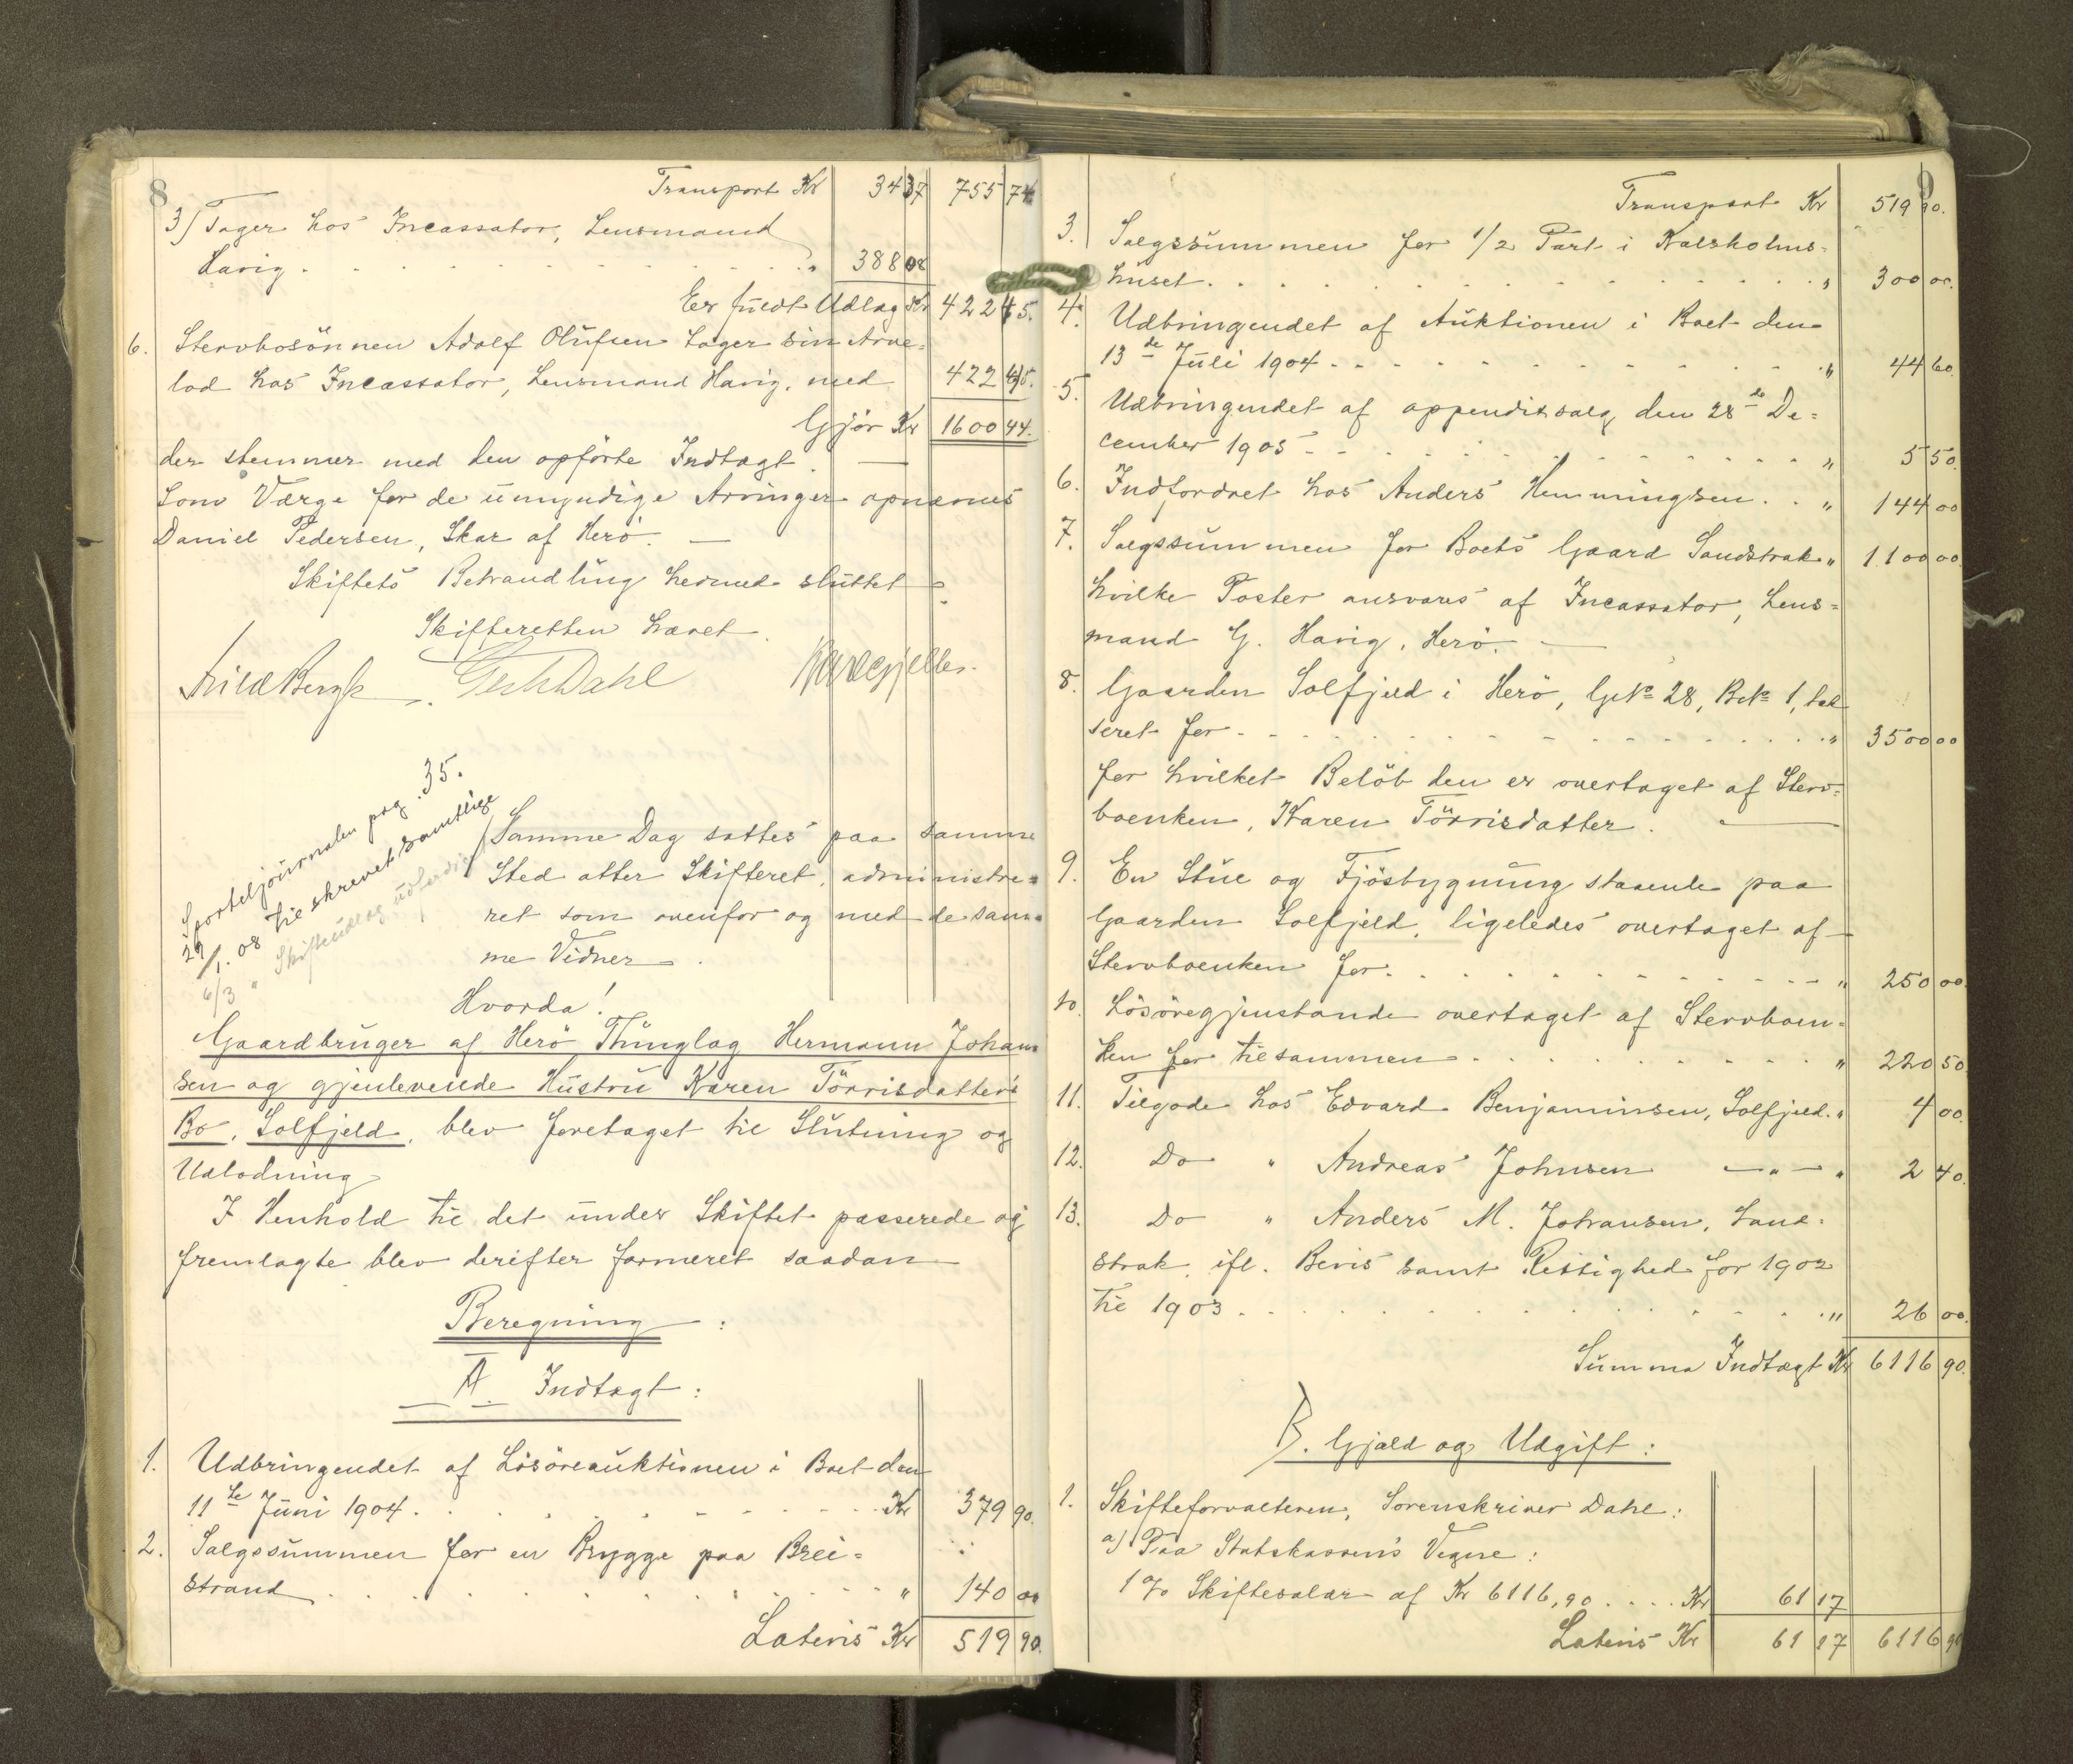 8
Transport Kr 34 37 755 74
3) Tager hos Incassator, Lensmand
Havig . . . . . " 388 08
Er fuldt Udlag Kr 422 45.
6. Stervbosönnen Adolf Olufsen tager sin Arve-
lod hos Incassator, Lensmand Havig, med 422 45.
Gjör Kr 1600 44.
der stemmer med den opförte Indtægt. —
Som Værge for de umyndige Arvinger opnævnes
Daniel Pedersen, Skar af Herö. —
Skiftets Behandling hermed sluttet.
Skifteretten hævet.
Dahl
Sporteljournalen pag. 35.
22/1. 08 tilskrevet samtlige
6/3 " Skifteudlæg udfærdig
Samme Dag sattes paa samme
Sted atter Skifteret, administre-
ret som ovenfor og med de sam-
me Vidner.
Hvorda!
Gaardbruger af Herö Thinglag Hermann Johan-
sen og gjenlevende Hustru Karen Törrisdatter's
Bo, Solfjeld, blev foretaget til Slutning og
Udlodning
I Henhold til det under Skiftet passerede og
fremlagte blev derifter formeret saadan
Beregning:
A. Indtægt:
1. Udbringendet af Lösöreauktionen i Boet den
11te Juni 1904 . . . . . Kr 379 90.
2. Salgssummen for en Brygge paa Brei-
strand . . . . . " 140 00
Lateris Kr 519 90.
9
Transport Kr 519 90.
3. Salgssummen for 1/2 Part i Kalsholms-
huset . . . . . " 300 00.
4. Udbringendet af Auktionen i Boet den
13de Juli 1904 . . . . . " 44 60.
5. Udbringendet af appendixsalg den 28de De-
cember 1905 . . . . . " 5 50.
6. Indfordret hos Anders Hemmingsen . . " 144 00
7. Salgssummen for Boets Gaard Sandstrak " 1100 00.
hvilke Poster ansvares af Incassator, Lens-
mand G. Havig, Herö. —
8. Gaarden Solfjeld i Herö, GNo 28, BNo 1, tak
seret for . . . . . " 3500 00
for hvilket Belöb den er overtaget af Sterv-
boenken, Karen Törrisdatter. —
9. En Stue og Fjösbygning staaende paa
Gaarden Solfjeld, ligeledes overtaget af
Stervboenken for . . . . . " 250 00.
10. Lösöregjenstande overtaget af Stervboen-
ken for tilsammen . . . . . " 220 50.
11. Tilgode hos Edvard Benjaminsen, Solfjeld. " 4 00.
12. Do " Andreas Johnsen —"— " 2 40.
13. Do " Anders M. Johansen, Sand-
strak, ifl. Bevis samt Rettighed for 1902
til 1903 . . . . . " 26 00.
Summa Indtægt Kr 6116 90.
B. Gjæld og Udgift:
1. Skifteforvalteren, Sorenskriver Dahl:
a) Paa Statskassen's Vegne:
1 % Skiftesalær af Kr 6116,90 . . . . Kr 61 17
Lateris Kr 61 17 6116 90